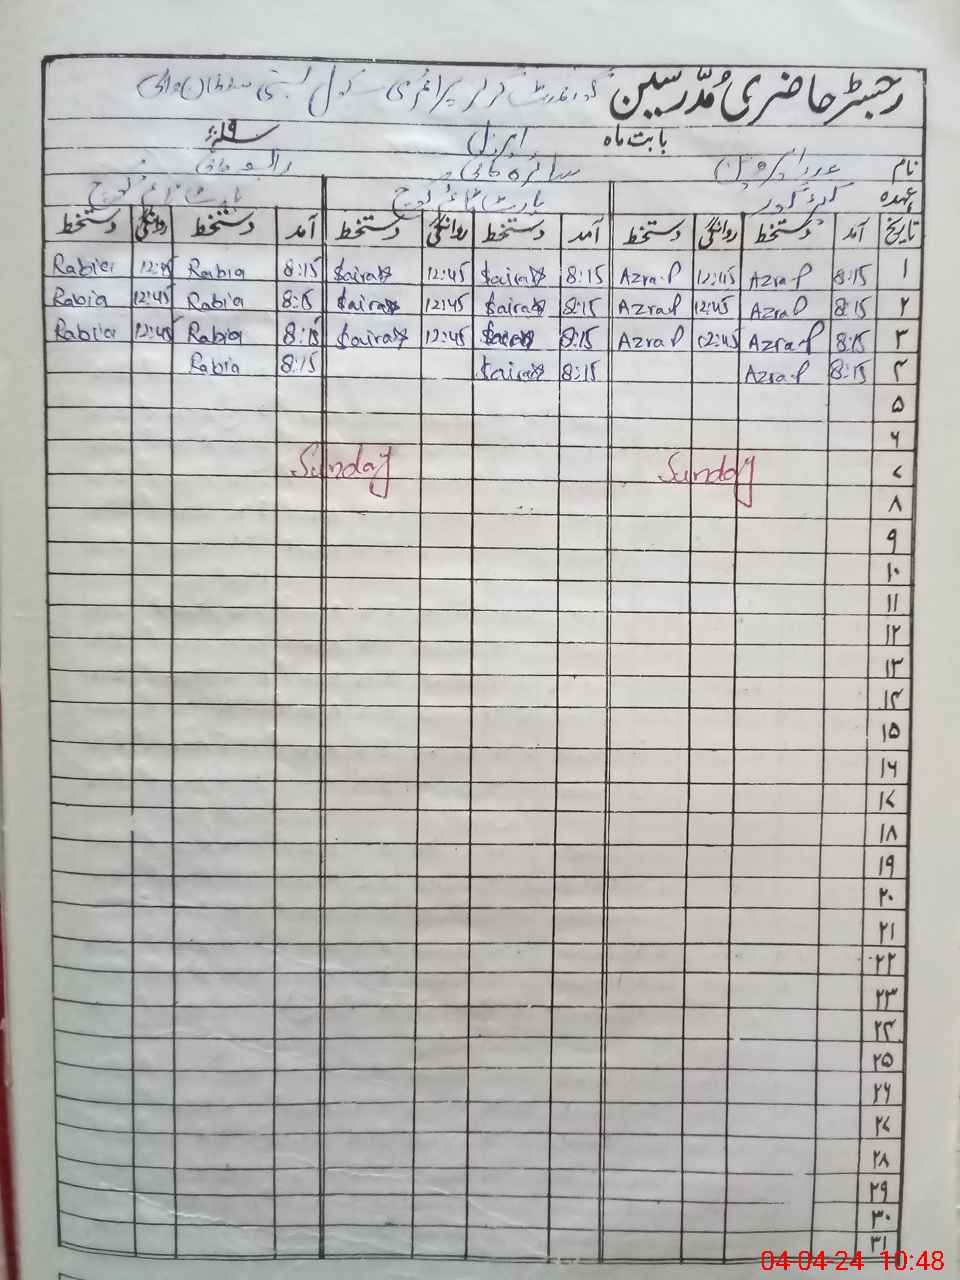 رجسٹر حاضری مُدّرسین گورنمنٹ گرلز پرائمری سکول بستی
بابت ماہ اپریل ۱۹ء
نام عذرا پروین
عہدہ
تاریخ آمد دستخط روانگی دستخط آمد دستخط روانگی دستخط آمد دستخط روانگی دستخط
۱ 8:15 Azra.P 12:45 Azra.P 8:15 Saira 12:45 Saira 8:15 Rabia 12:45 Rabia
۲ 8:15 Azra P 12:45 Azra P 8:15 Saira 12:45 Saira 8:15 Rabia 12:45 Rabia
۳ 8:15 Azra.P 12:45 Azra P 8:15 Saira 12:45 Saira 8:15 Rabia 12:45 Rabia
۴ 8:15 Azra.P 8:15 Saira 8:15 Rabia
۵
۶
۷ Sunday Sunday
۸
۹
۱۰
۱۱
۱۲
۱۳
۱۴
۱۵
۱۶
۱۷
۱۸
۱۹
۲۰
۲۱
۲۲
۲۳
۲۴
۲۵
۲۶
۲۷
۲۸
۲۹
۳۰
۳۱
04-04-24 10:48